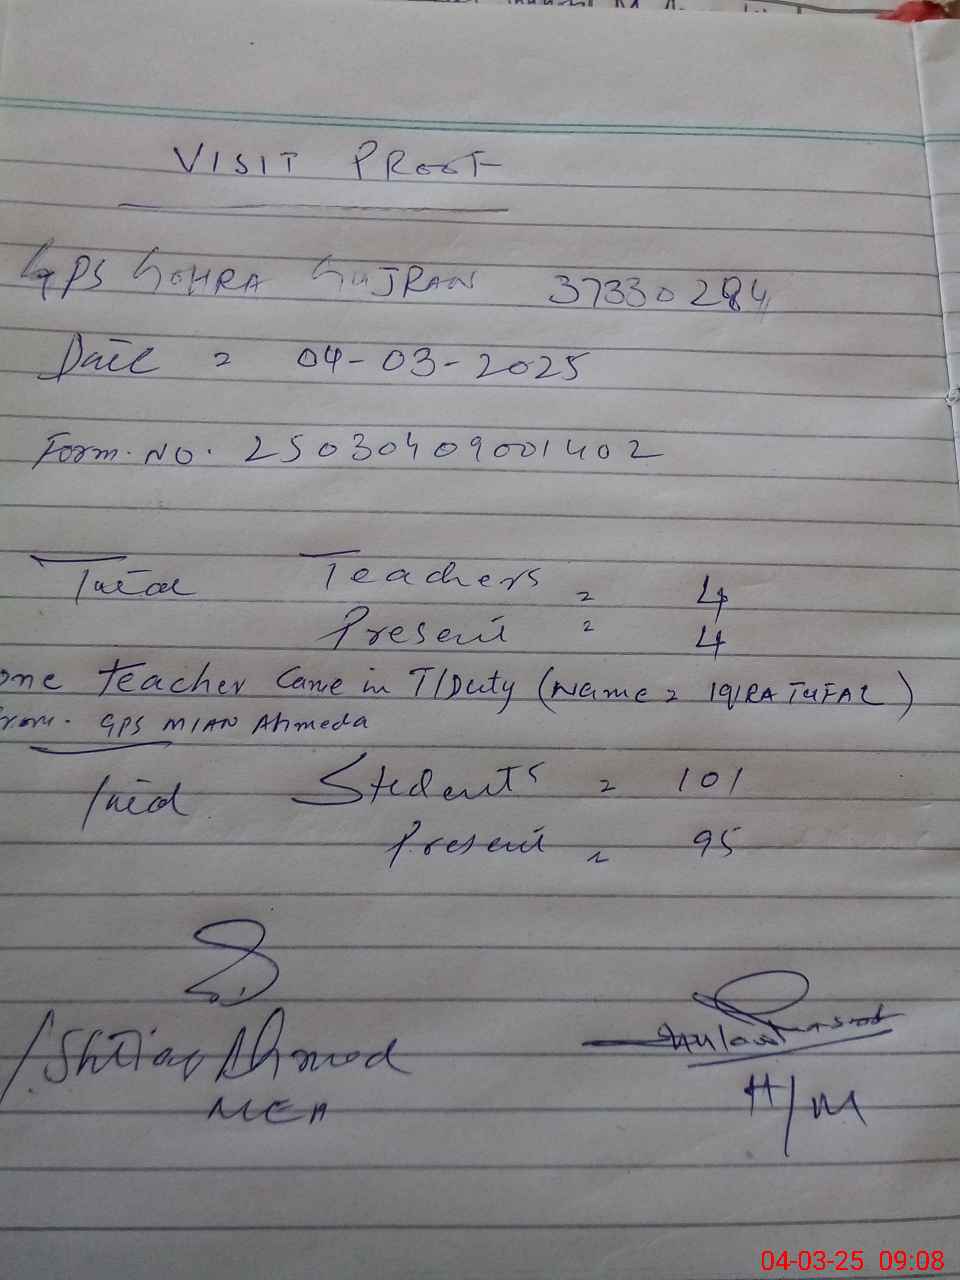 VISIT PROOF
GPS GOHRA GUJRAN 37330284
Date = 04-03-2025
Form. NO. 25030409001402
Total Teachers = 4
Present = 4
one teacher Came in T/Duty (Name = IQRA TUFAL)
from. GPS MIAN Ahmeda
Total Students = 101
Present = 95
Ishtiaq Ahmed
MEA
H/M
04-03-25 09:08